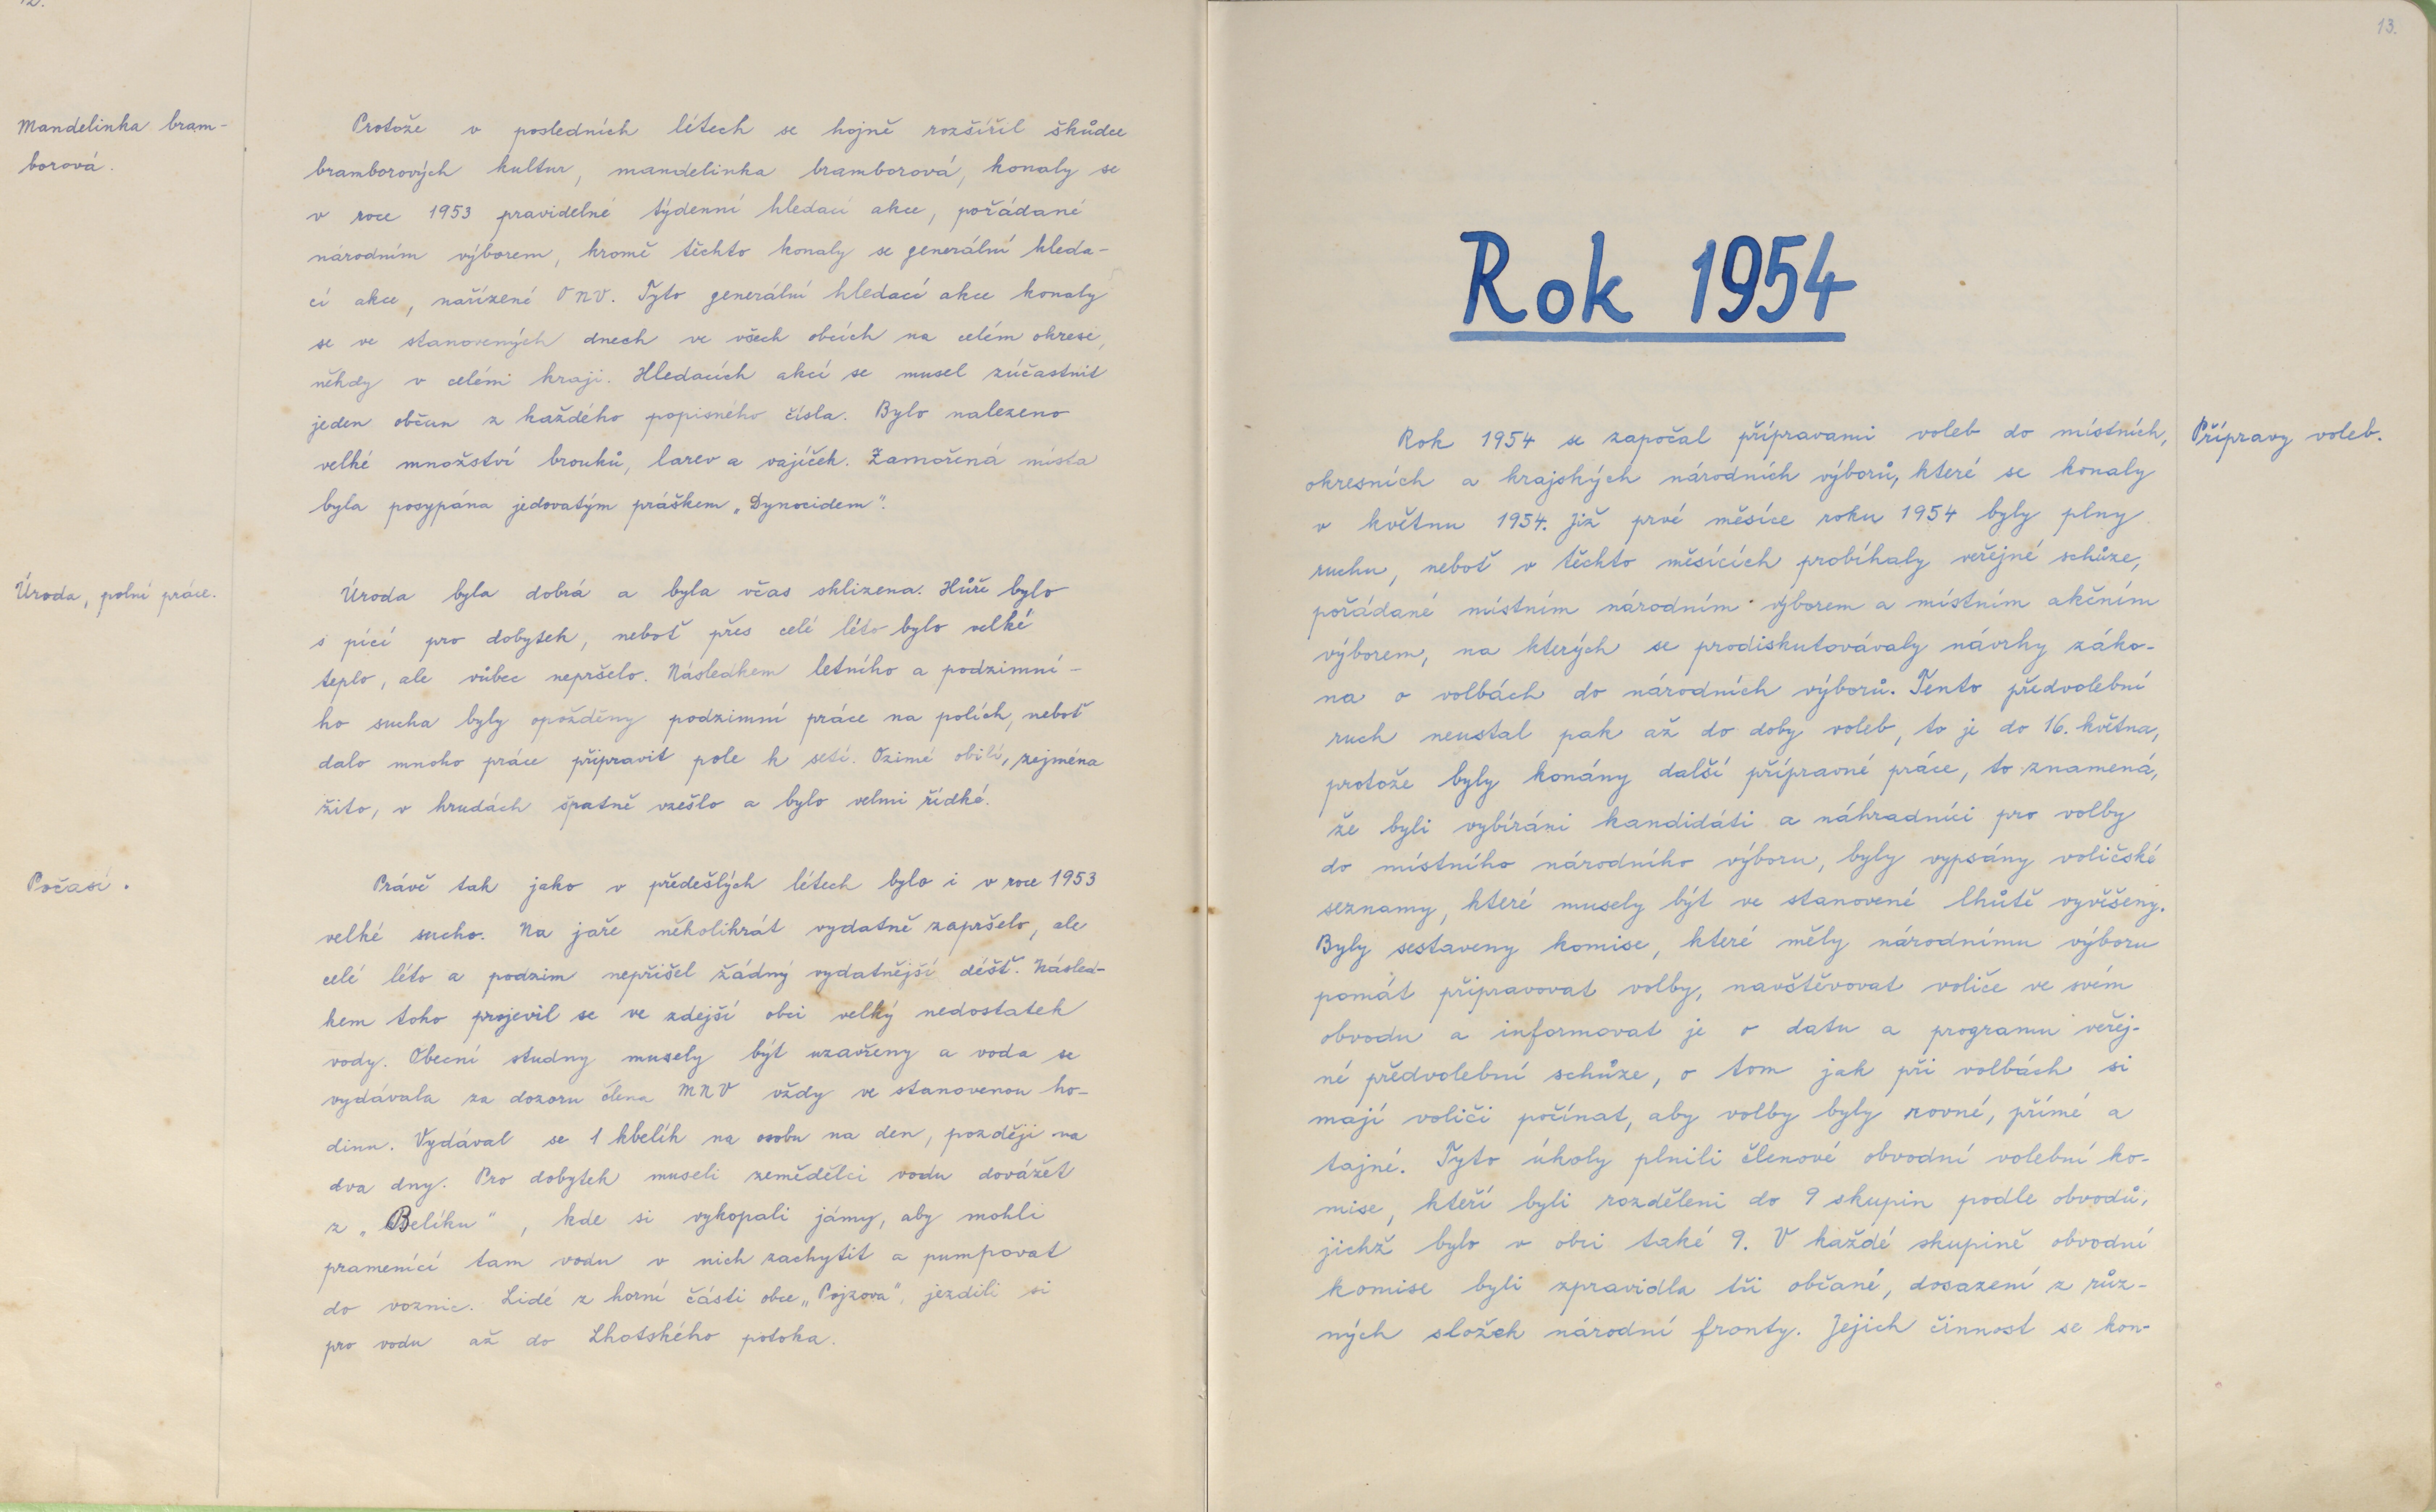 12.
Mandelinka bram-
borová.
Protože v posledních létech se hojně rozšířil škůdce
bramborových kultur, mandelinka bramborová, konaly se
v roce 1953 pravidelné týdenní hledací akce, pořádané
národním výborem, kromě těchto konaly se generální hleda-
cí akce, nařízené ONV. Tyto generální hledací akce konaly
se ve stanovených dnech ve všech obcích na celém okrese,
někdy v celém kraji. Hledacích akcí se musel zúčastnit
jeden občan z každého popisného čísla. Bylo nalezeno
velké množství brouků, larev a vajíček. Zamořená místa
byla posypána jedovatým práškem „Dynocidem".
Úroda, polní práce.
Úroda byla dobrá a byla včas sklizena. Hůře bylo
s pící pro dobytek, neboť přes celé léto bylo velké
teplo, ale vůbec nepršelo. Následkem letního a podzimní-
ho sucha byly opožděny podzimní práce na polích, neboť
dalo mnoho práce připravit pole k setí. Ozimé obilí, zejména
žito, v hrudách špatně vzešlo a bylo velmi řídké.
Počasí.
Právě tak jako v předešlých létech bylo i v roce 1953
velké sucho. Na jaře několikrát vydatně zapršelo, ale
celé léto a podzim nepřišel žádný vydatnější déšť. Násled-
kem toho projevil se ve zdejší obci velký nedostatek
vody. Obecní studny musely být uzavřeny a voda se
vydávala za dozoru člena MNV vždy ve stanovenou ho-
dinu. Vydával se 1 kbelík na osobu na den, později na
dva dny. Pro dobytek museli zemědělci vodu dovážet
z „Belíku", kde si vykopali jámy, aby mohli
pramenící tam vodu v nich zachytit a pumpovat
do voznic. Lidé z horní části obce „Pojzova", jezdili si
pro vodu až do Lhotského potoka.
13.
Rok 1954
Přípravy voleb.
Rok 1954 se započal přípravami voleb do místních,
okresních a krajských národních výborů, které se konaly
v květnu 1954. Již prvé měsíce roku 1954 byly plny
ruchu, neboť v těchto měsících probíhaly veřejné schůze,
pořádané místním národním výborem a místním akčním
výborem, na kterých se prodiskutovávaly návrhy záko-
na o volbách do národních výborů. Tento předvolební
ruch neustal pak až do doby voleb, to je do 16. května,
protože byly konány další přípravné práce, to znamená,
že byli vybíráni kandidáti a náhradníci pro volby
do místního národního výboru, byly vypsány voličské
seznamy, které musely být ve stanovené lhůtě vyvěšeny.
Byly sestaveny komise, které měly národnímu výboru
pomát připravovat volby, navštěvovat voliče ve svém
obvodu a informovat je o datu a programu veřej-
né předvolební schůze, o tom jak při volbách si
mají voliči počínat, aby volby byly rovné, přímé a
tajné. Tyto úkoly plnili členové obvodní volební ko-
mise, kteří byli rozděleni do 9 skupin podle obvodů,
jichž bylo v obci také 9. V každé skupině obvodní
komise byli zpravidla tři občané, dosazení z růz-
ných složek národní fronty. Jejich činnost se kon-